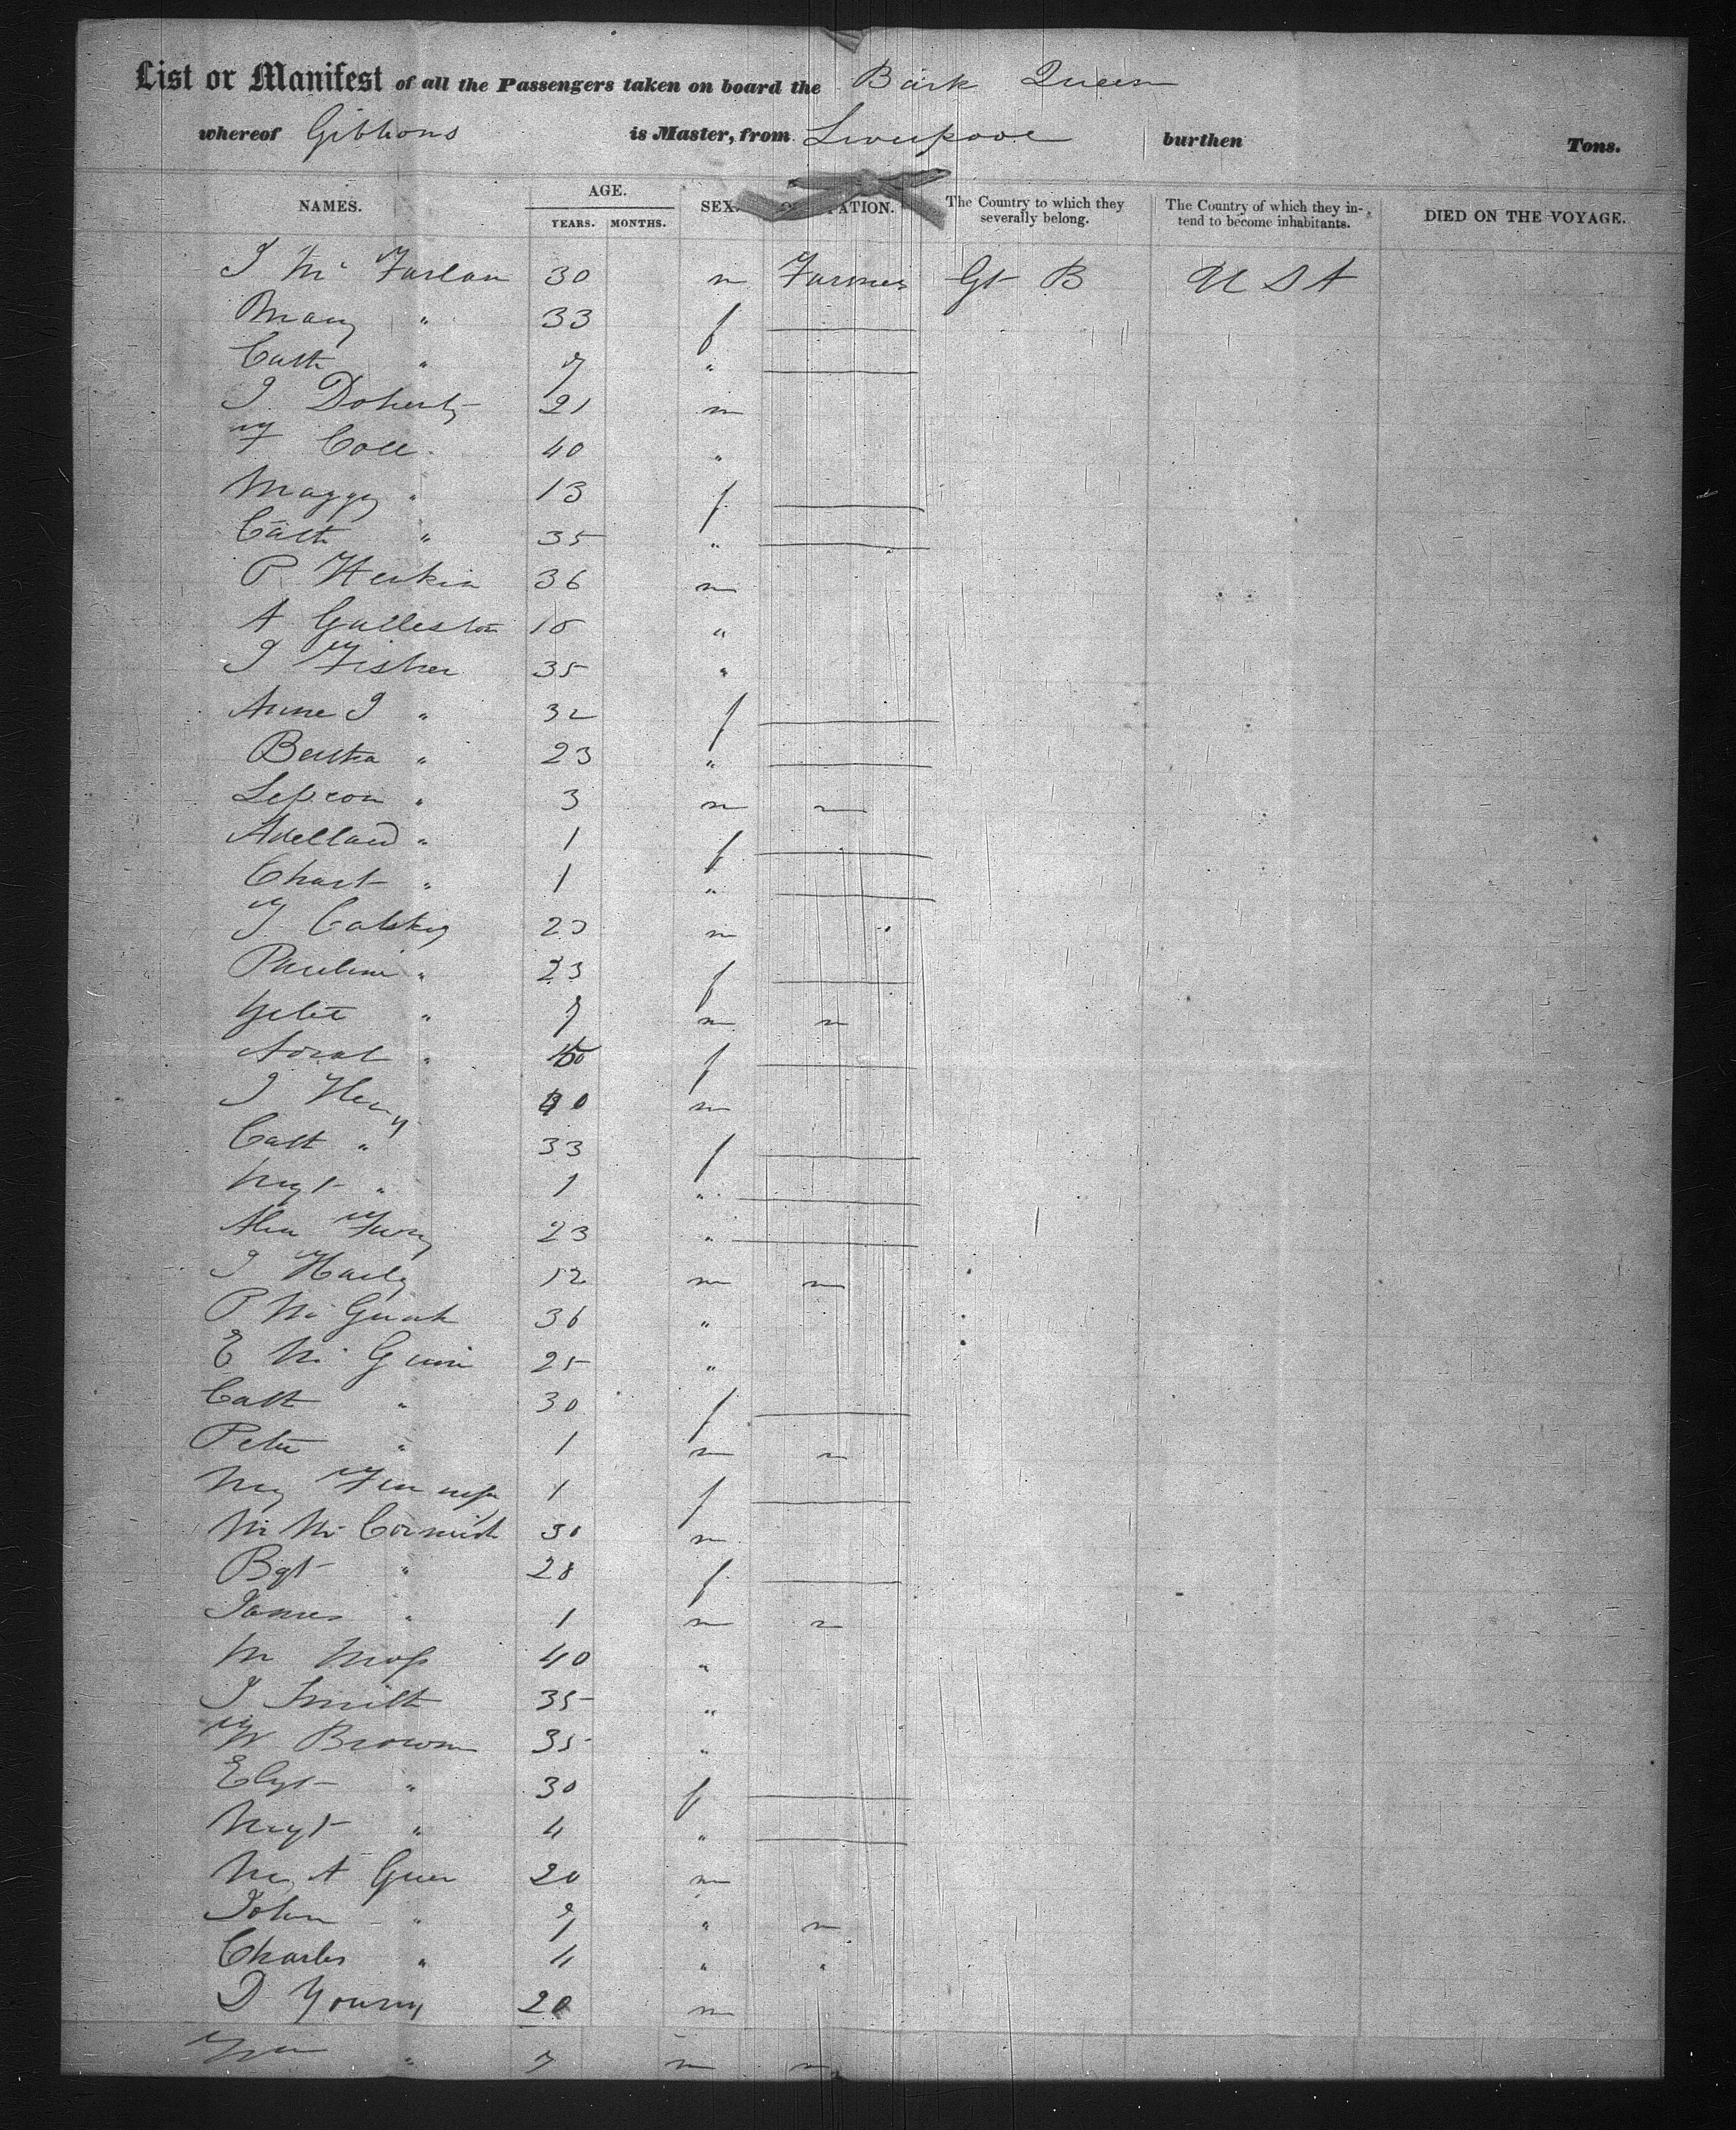 List or Manifest of all the Passengers taken on board the Bark Queen
whereof Gibbons is Master, from Liverpool burthen Tons.
NAMES. AGE. YEARS. MONTHS. SEX. OCCUPATION. The Country to which they severally belong. The Country of which they intend to become inhabitants. DIED ON THE VOYAGE.
J Mc Farlan 30 m Farmer Gt B U S A
Mary " 33 f
Cath " 7 "
J Doherty 21 m
F Coll 40 "
Maggy " 13 f
Cath " 35 "
P 36 m
A "
J Fisher 35 "
Anne J " 32 f
Bertha " 23 "
" 3 m
" 1 f
" 1 "
23 m
Pauline " 23 f
" 7 m
" f
J Henry m
Cath " 33 f
Mgt " 1 "
23 "
J 12 m
P Mc 36 "
E Mc 25 "
Cath " 30 f
Peter " 1 m
1 f
M Mc Cormick 30 m
Bgt " 28 f
James " 1 m
M Moss 40 "
J Smith 35 "
W Brown 35 "
" 30 f
Mgt " 4 "
20 m
John " 7 "
Charles " 4 "
D Young 20 m
" 7 m